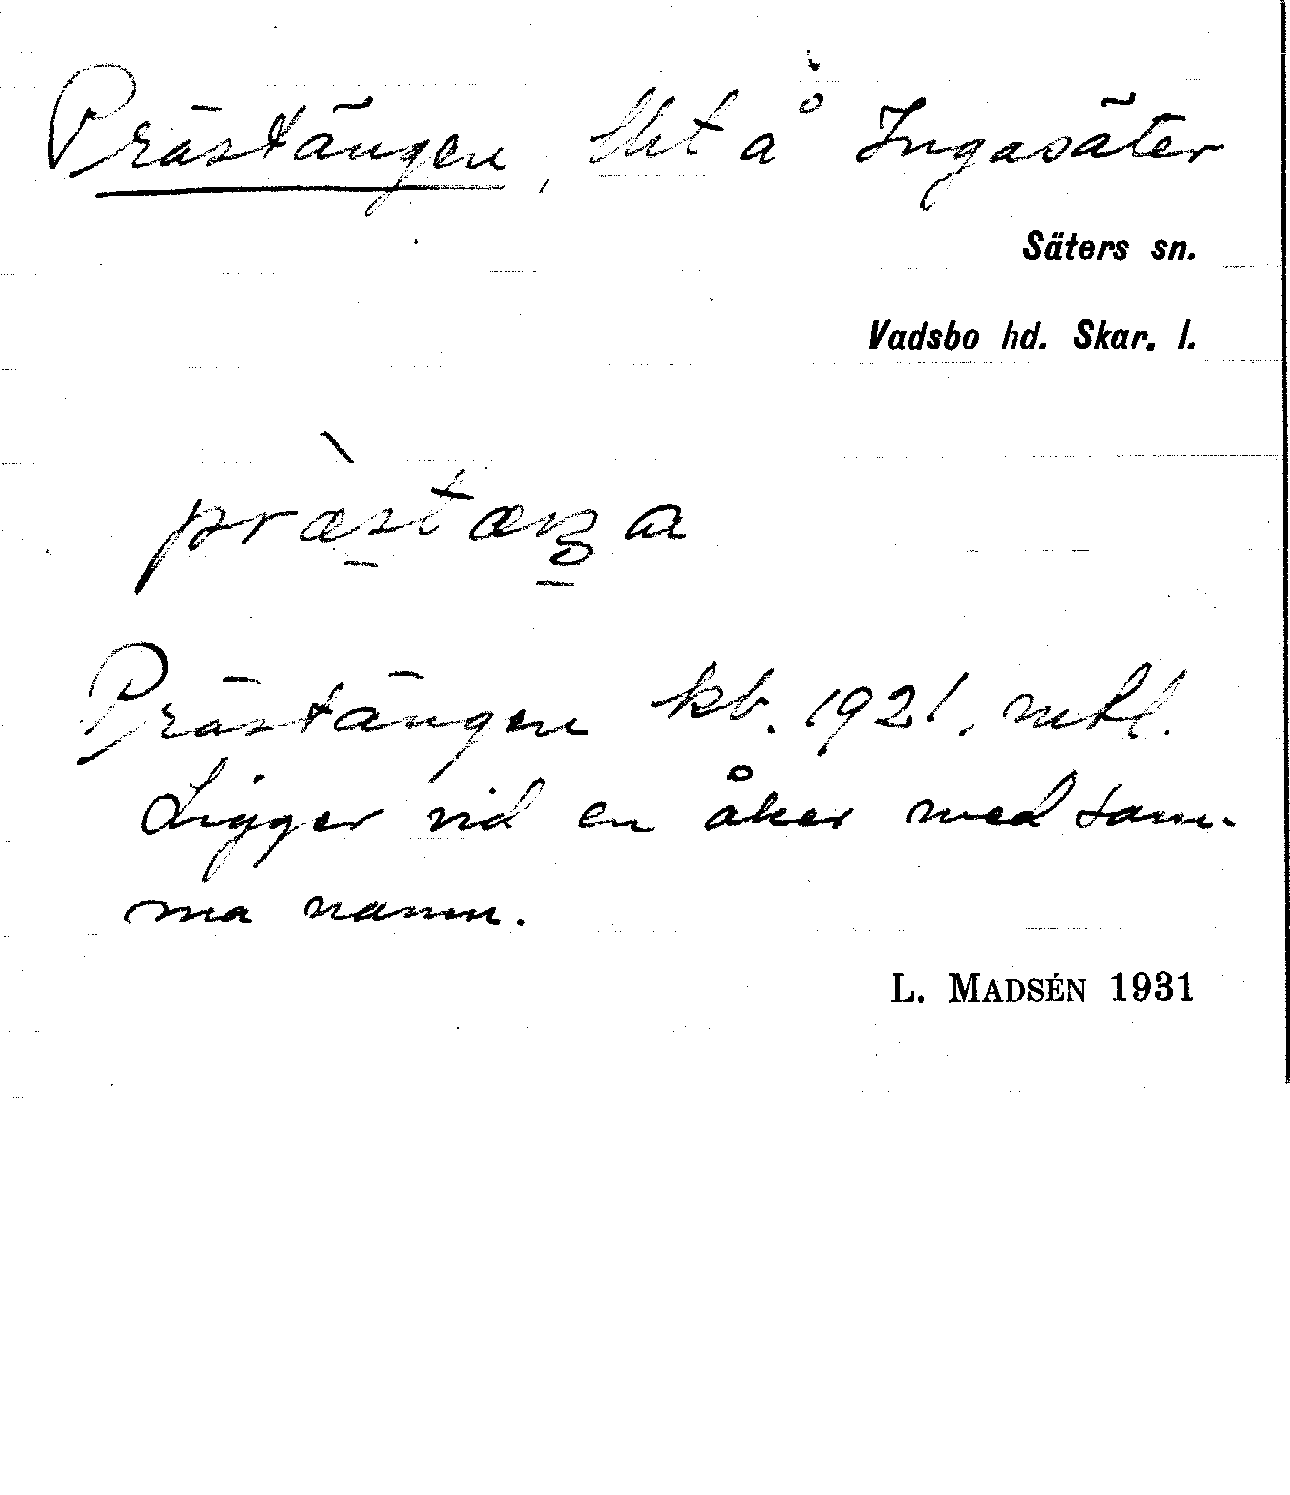 Prästängen, lht å Ingasäter
Säters sn.
Vadsbo hd. Skar. l.
Prästängen kb. 1921, mtl.
Ligger vid en åker med sam-
ma namn.
L. MADSÉN 1931